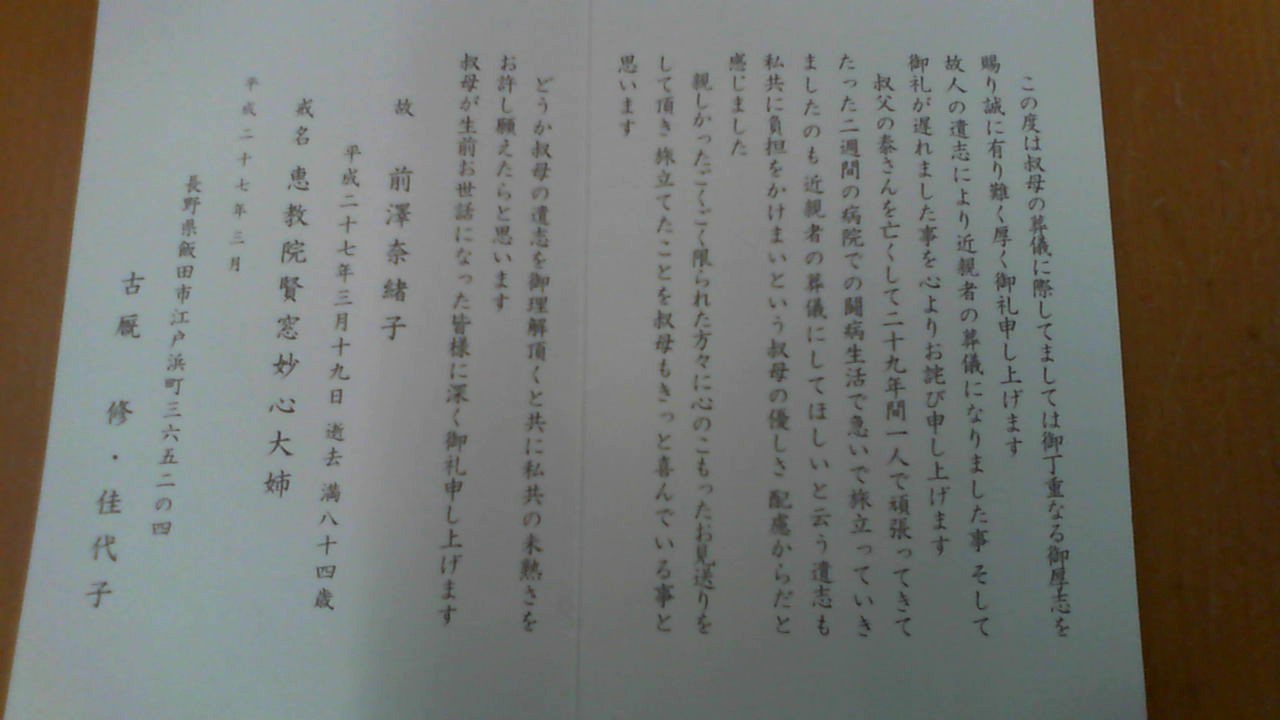 この度は叔母の葬儀に際してましては御丁重なる御厚志を
賜り誠に有り難く厚く御礼申し上げます
故人の遺志により近親者の葬儀になりました事 そして
御礼が遅れました事を心よりお詫び申し上げます
叔父の泰さんを亡くして二十九年間一人で頑張ってきて
たった二週間の病院での闘病生活で急いで旅立っていき
ましたのも 近親者の葬儀にしてほしいと云う遺志も
私共に負担をかけまいという叔母の優しさ 配慮からだと
感じました
親しかったごくごく限られた方々に心のこもったお見送りを
して頂き 旅立てたことを叔母もきっと喜んでいる事と
思います
どうか叔母の遺志を御理解頂くと共に私共の未熟さを
お許し願えたらと思います
叔母が生前お世話になった皆様に深く御礼申し上げます
故 前澤奈緒子
平成二十七年三月十九日 逝去 満八十四歳
戒名 恵教院賢窓妙心大姉
平成二十七年三月
長野県飯田市江戸浜町三六五二の四
古厩 修・佳代子